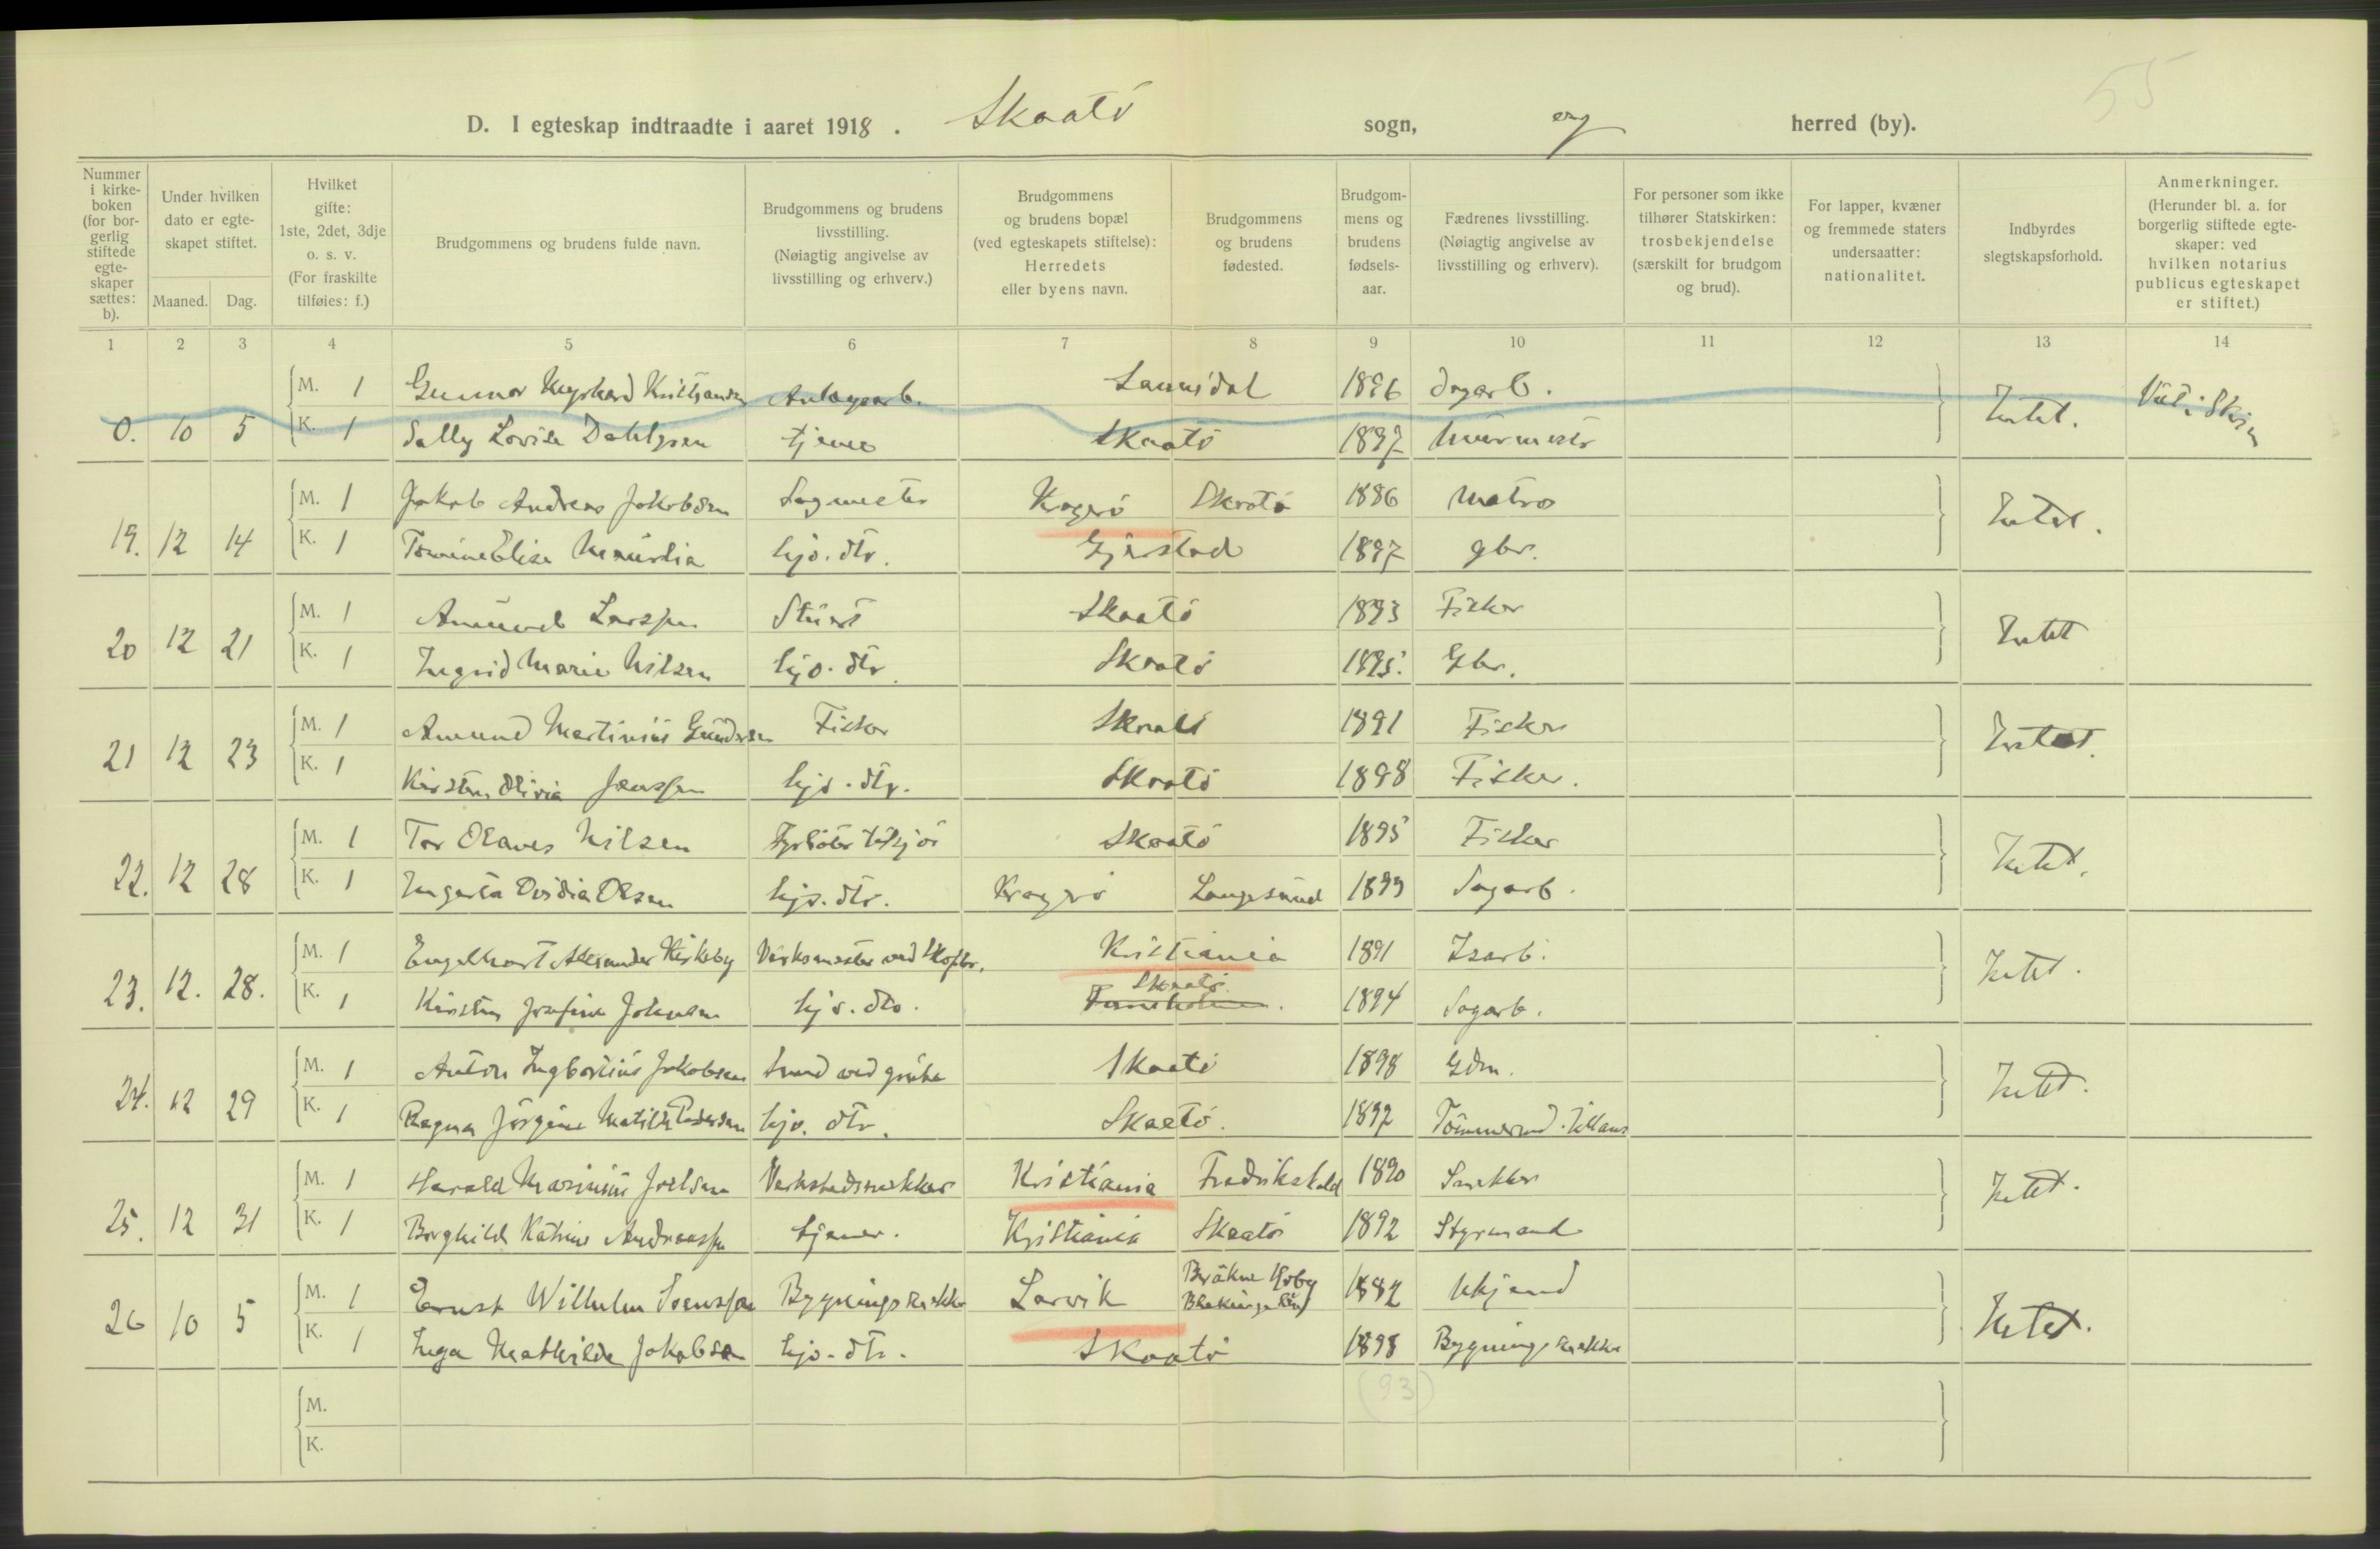 55
D. I egteskap indtraadte i aaret 1918. Skaatö sogn, og herred (by).
Nummer i kirke-boken (for bor-gerlig stiftede egte-skaper sættes: b).
Under hvilken dato er egte-skapet stiftet.
Maaned. Dag.
Hvilket gifte: 1ste, 2det, 3dje o. s. v. (For fraskilte tilføies: f.)
Brudgommens og brudens fulde navn.
Brudgommens og brudens livsstilling. (Nøiagtig angivelse av livsstilling og erhverv.)
Brudgommens og brudens bopæl (ved egteskapets stiftelse): Herredets eller byens navn.
Brudgommens og brudens fødested.
Brudgom-mens og brudens fødsels-aar.
Fædrenes livsstilling. (Nøiagtig angivelse av livsstilling og erhverv).
For personer som ikke tilhører Statskirken: trosbekjendelse (særskilt for brudgom og brud).
For lapper, kvæner og fremmede staters undersaatter: nationalitet.
Indbyrdes slegtskapsforhold.
Anmerkninger. (Herunder bl. a. for borgerlig stiftede egte-skaper: ved hvilken notarius publicus egteskapet er stiftet.)
1 2 3 4 5 6 7 8 9 10 11 12 13 14
M. 1 Gunnar Kristiansen Anlegsarb. Sannidal 1896 dagarb.
0. 10 5 K. 1 Sally Lovise Dahlgren tjener Skaatö 1897 Murmester Intet. Viet i Skien
M. 1 Jakob Andreas Jakobsen Sagmester Kragerö Skaatö 1886 Matros
19. 12 14 K. 1 Elise hjv. dtr. Gjerstad 1897 gbr. Intet.
M. 1 Amund Larssen Stuert Skaatö 1893 Fisker
20 12 21 K. 1 Ingrid Marie Nilsen hjv. dtr. Skaatö 1895. Gbr. Intet
M. 1 Amund Martinius Gundersen Fisker Skaatö 1891 Fisker
21 12 23 K. 1 Kirsten Olivia Jenssen hjv. dtr. Skaatö 1898 Fisker. Intet.
M. 1 Tor Olaves Nilsen Fyrböter tilsjös Skaatö 1895 Fisker
22. 12 28 K. 1 Ingerta Ovidia Olsen hjv. dtr. Kragerö Langesund 1899 Sagarb. Intet.
M. 1 Engelhart Alexander Kirkeby Verksmester ved Skofbr. Kristiania 1891 Isarb.
23. 12. 28. K. 1 Kirsten Josefine Johnsen hjv. dtr. Skaatö. 1894 Sagarb. Intet.
M. 1 Anton Ingbortius Jakobsen Smed ved grube Skaatö 1898 Gdm.
24. 12 29 K. 1 Ragna Jörgine Matilde Pedersen hjv. dtr. Skaatö. 1897 Tömmermand tilhavs Intet.
M. 1 Harald Marinius Joelsen Verkstedsnekker Kristiania Fredrikshald 1890 Snekker
25. 12 31 K. 1 Borghild Katrine Andreassen tjener. Kristiania Skaatö 1892 Styrmand Intet.
M. 1 Ernst Wilhelm Svensson Bygningssnekker Larvik Bräkne Hoby Blekinge län 1882 Ukjend
26 10 5 K. 1 Inga Mathilde Jakobsen hjv. dtr. Skaatö 1898 Bygningssnekker Intet.
(93)
M.
K.